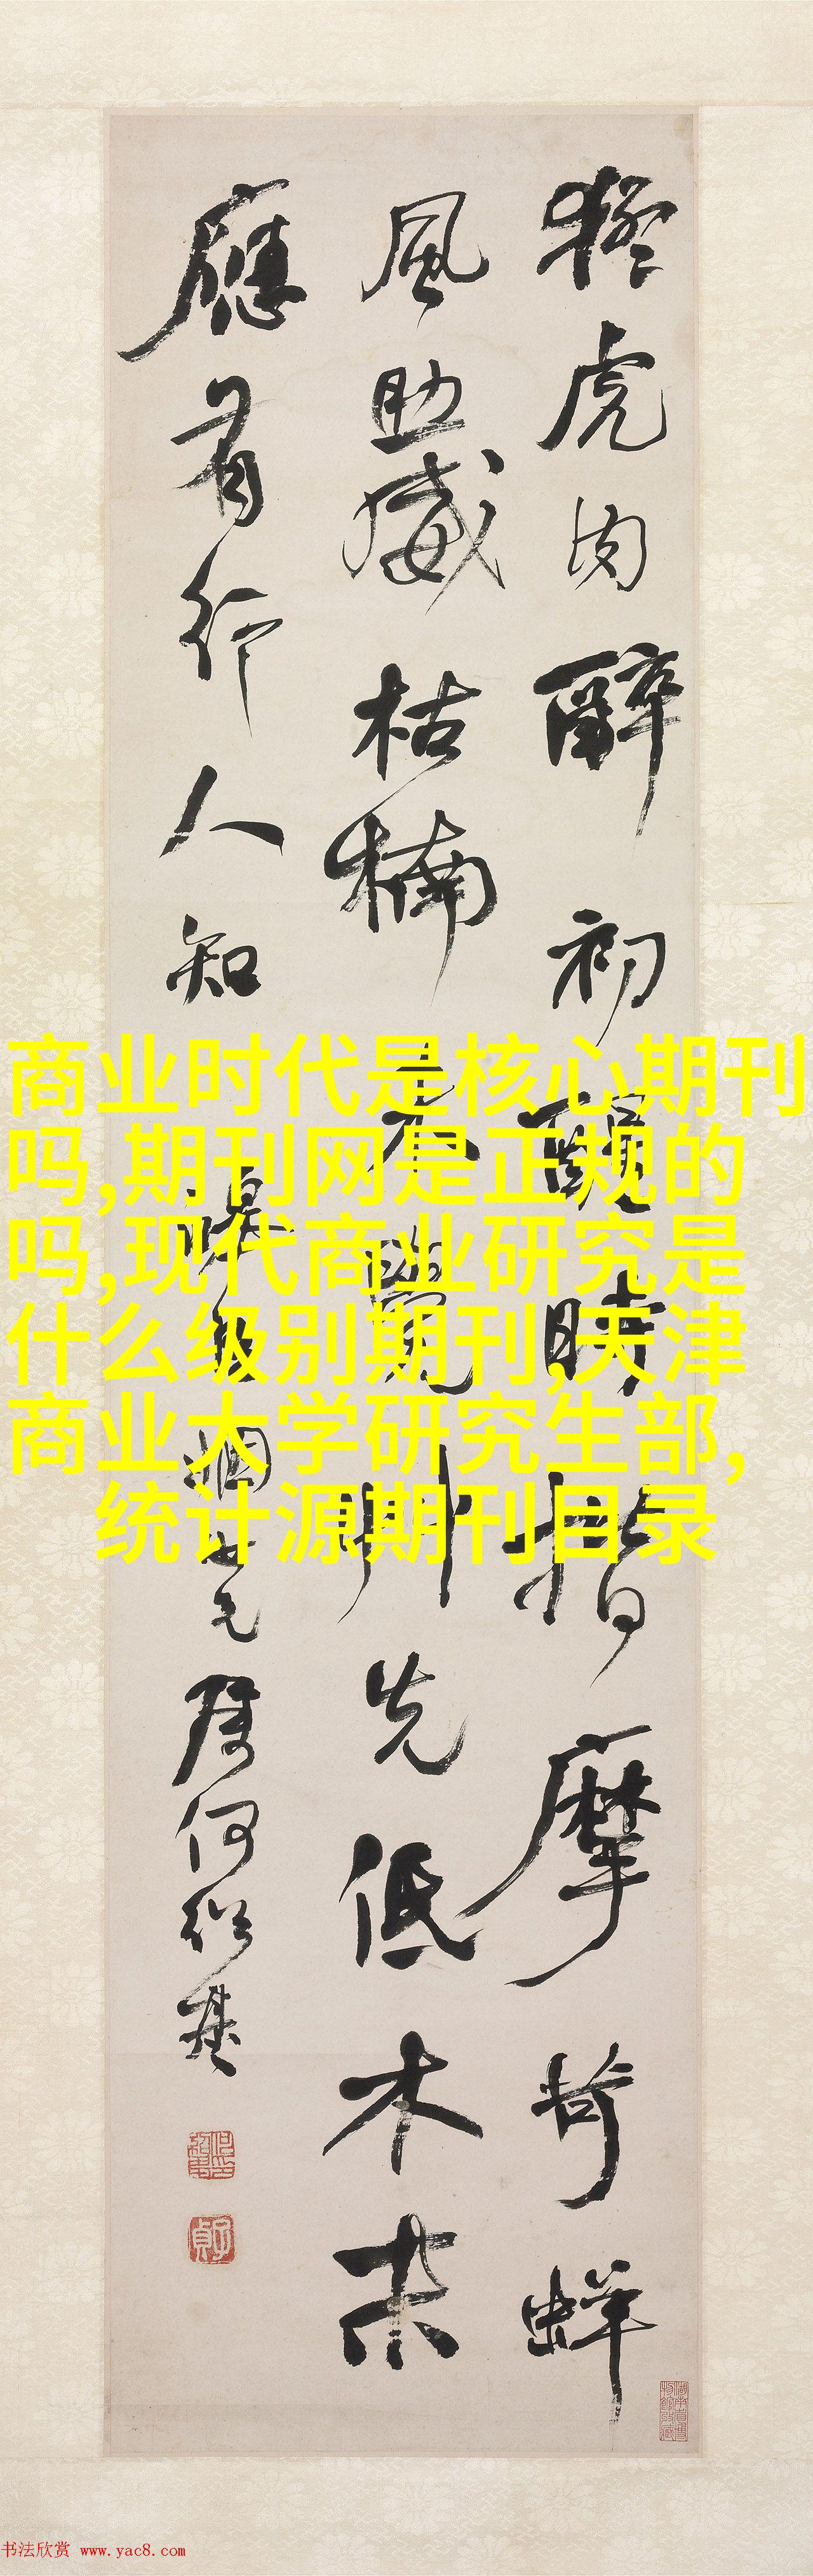 猛虎肉醉初醒時揩摩苛蛘
風助威枯楠未覺州先低木末
應有行人知
何紹基
商业时代是核心期刊
吗,期刊网是正规的
吗,现代商业研究是
什么级别期刊,天津
商业大学研究生部,
统计源期刊目录
书法欣赏 www.yac8.com